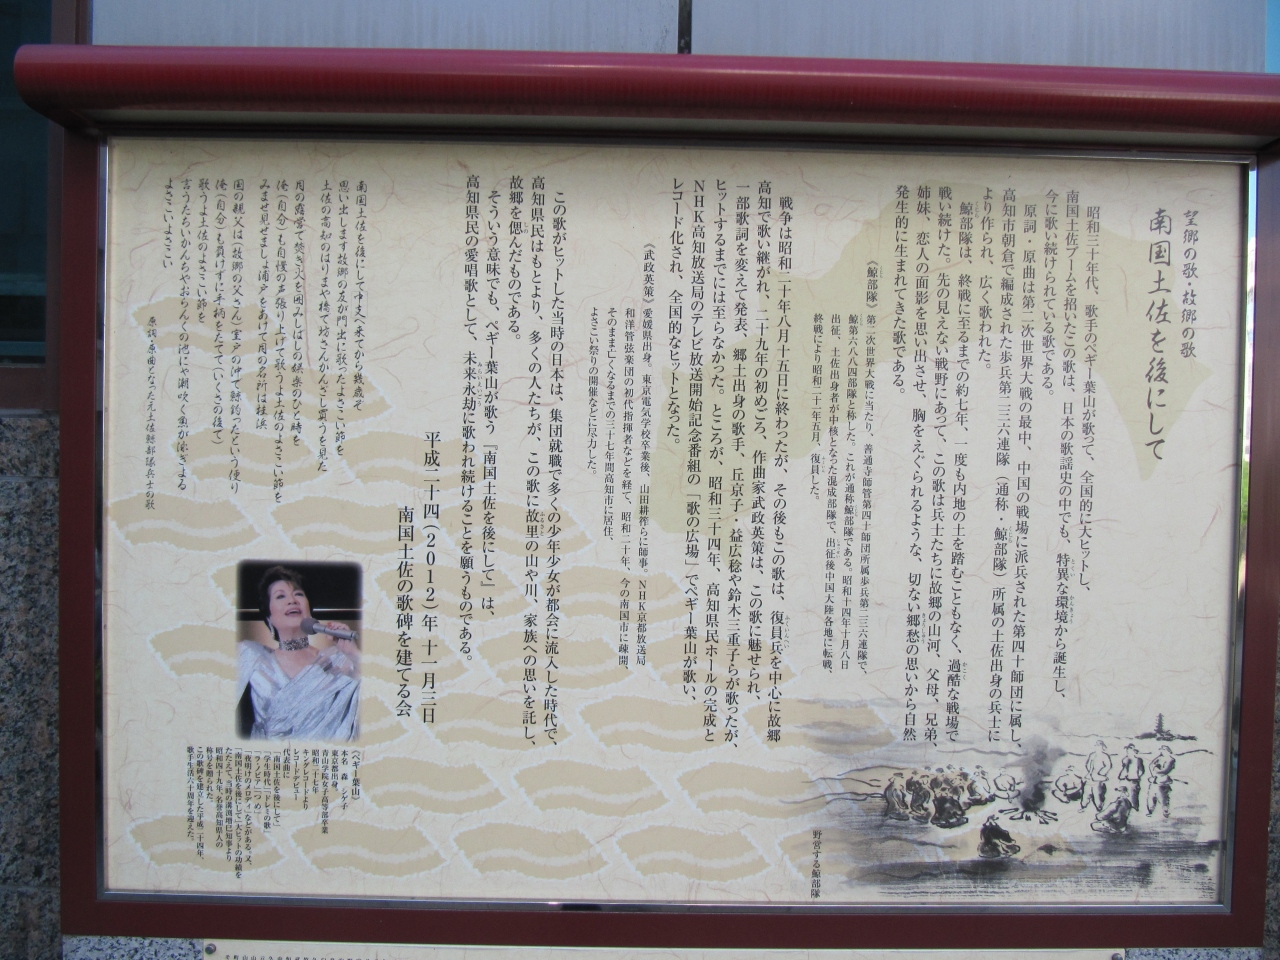 望郷の歌・故郷の歌
南国土佐を後にして
昭和三十年代、歌手のペギー葉山が歌って、全国的に大ヒットし、
南国土佐ブームを招いたこの歌は、日本の歌謡史の中でも、特異な環境から誕生し、
今に歌い続けられている歌である。
原詞・原曲は第二次世界大戦の最中、中国の戦場に派兵された第四十師団に属し、
高知市朝倉で編成された歩兵第二三六連隊（通称・鯨部隊）所属の土佐出身の兵士に
より作られ、広く歌われた。
鯨部隊は、終戦に至るまでの約七年、一度も内地の土を踏むこともなく、過酷な戦場で
戦い続けた。先の見えない戦野にあって、この歌は兵士たちに故郷の山河、父母、兄弟、
姉妹、恋人の面影を思い出させ、胸をえぐられるような、切ない郷愁の思いから自然
発生的に生まれてきた歌である。
《鯨部隊》第二次世界大戦に当たり、善通寺師管第四十師団所属歩兵第二三六連隊で、
鯨第六八八四部隊と称した。これが通称鯨部隊である。昭和十四年十月八日
出征、土佐出身者が中核となった混成部隊で、出征後中国大陸各地に転戦、
終戦により昭和二十一年五月、復員した。
戦争は昭和二十年八月十五日に終わったが、その後もこの歌は、復員兵を中心に故郷
高知で歌い継がれ、二十九年の初めごろ、作曲家武政英策は、この歌に魅せられ、
一部歌詞を変えて発表、郷土出身の歌手、丘京子・益広稔や鈴木三重子らが歌ったが、
ヒットするまでには至らなかった。ところが、昭和三十四年、高知県民ホールの完成と
NHK高知放送局のテレビ放送開始記念番組の「歌の広場」でペギー葉山が歌い、
レコード化され、全国的なヒットとなった。
《武政英策》愛媛県出身。東京電気学校卒業後、山田耕筰らに師事。NHK京都放送局
和洋管弦楽団の初代指揮者などを経て、昭和二十年、今の南国市に疎開、
そのまま亡くなるまでの三十七年間高知市に居住、
よさこい祭りの開催などに尽力した。
この歌がヒットした当時の日本は、集団就職で多くの少年少女が都会に流入した時代で、
高知県民はもとより、多くの人たちが、この歌に故里の山や川、家族への思いを託し、
故郷を偲んだものである。
そういう意味でも、ペギー葉山が歌う『南国土佐を後にして』は、
高知県民の愛唱歌として、未来永劫に歌われ続けることを願うものである。
平成二十四（2012）年十一月三日
南国土佐の歌碑を建てる会
南国土佐を後にして中支へ来てから幾歳ぞ
思い出します故郷の友が門出に歌ったよさこい節を
土佐の高知のはりまや橋で坊さんかんざし買うを見た
月の露営で焚き火を囲みしばしの娯楽のひと時を
俺（自分）も自慢の声張り上げて歌うよ土佐のよさこい節を
みませ見せましょ浦戸をあけて月の名所は桂浜
国の親父は（故郷の父さん）室戸の沖で鯨釣ったという便り
俺（自分）も負けずに手柄をたてて（いくさの後で）
歌うよ土佐のよさこい節を
言うたちいかんちやおらんくの池にゃ潮吹く魚が泳ぎよる
よさこいよさこい
原詞・原曲となった元土佐鯨部隊兵士の歌
《ペギー葉山》
本名 森 シゲ子
東京都出身。
青山学院女子高等部卒業
昭和二十七年
キングレコードより
レコードデビュー
代表曲に
「南国土佐を後にして」
「学生時代」「ドレミの歌」
「ラ・ノビア」「つめ」
「夜明けのメロディ」などがある。又、
「南国土佐を後にして」大ヒットの功績を
たたえて、当時の溝渕増巳知事より
昭和四十九年、名誉高知県人の
称号を贈られた。
この歌碑を建立した平成二十四年、
歌手生活六十周年を迎えた。
野営する鯨部隊